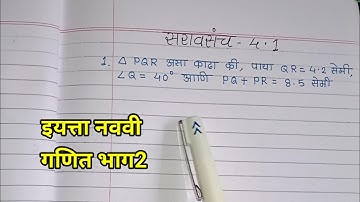 सरावसंच - 4.1
1. △ PQR असा काढा की, पाया QR = 4.2 सेमी,
∠Q = 40° आणि PQ + PR = 8.5 सेमी
इयत्ता नववी
गणित भाग2